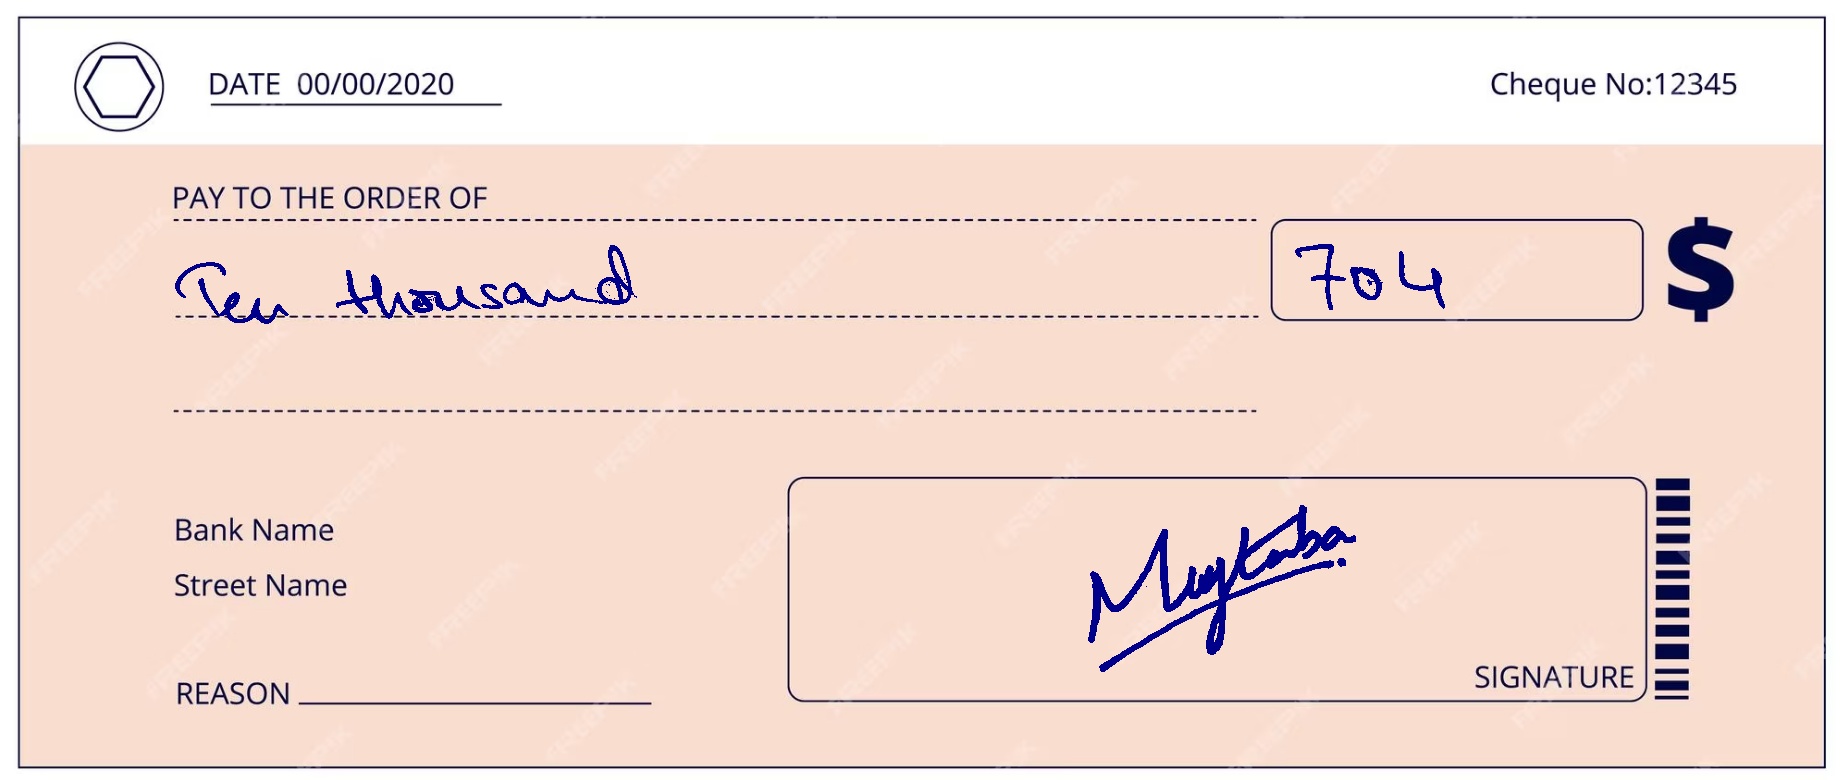 DATE 00/00/2020
Cheque No:12345
PAY TO THE ORDER OF
Ten thousand
704
$
Bank Name
Street Name
Mujtaba
SIGNATURE
REASON